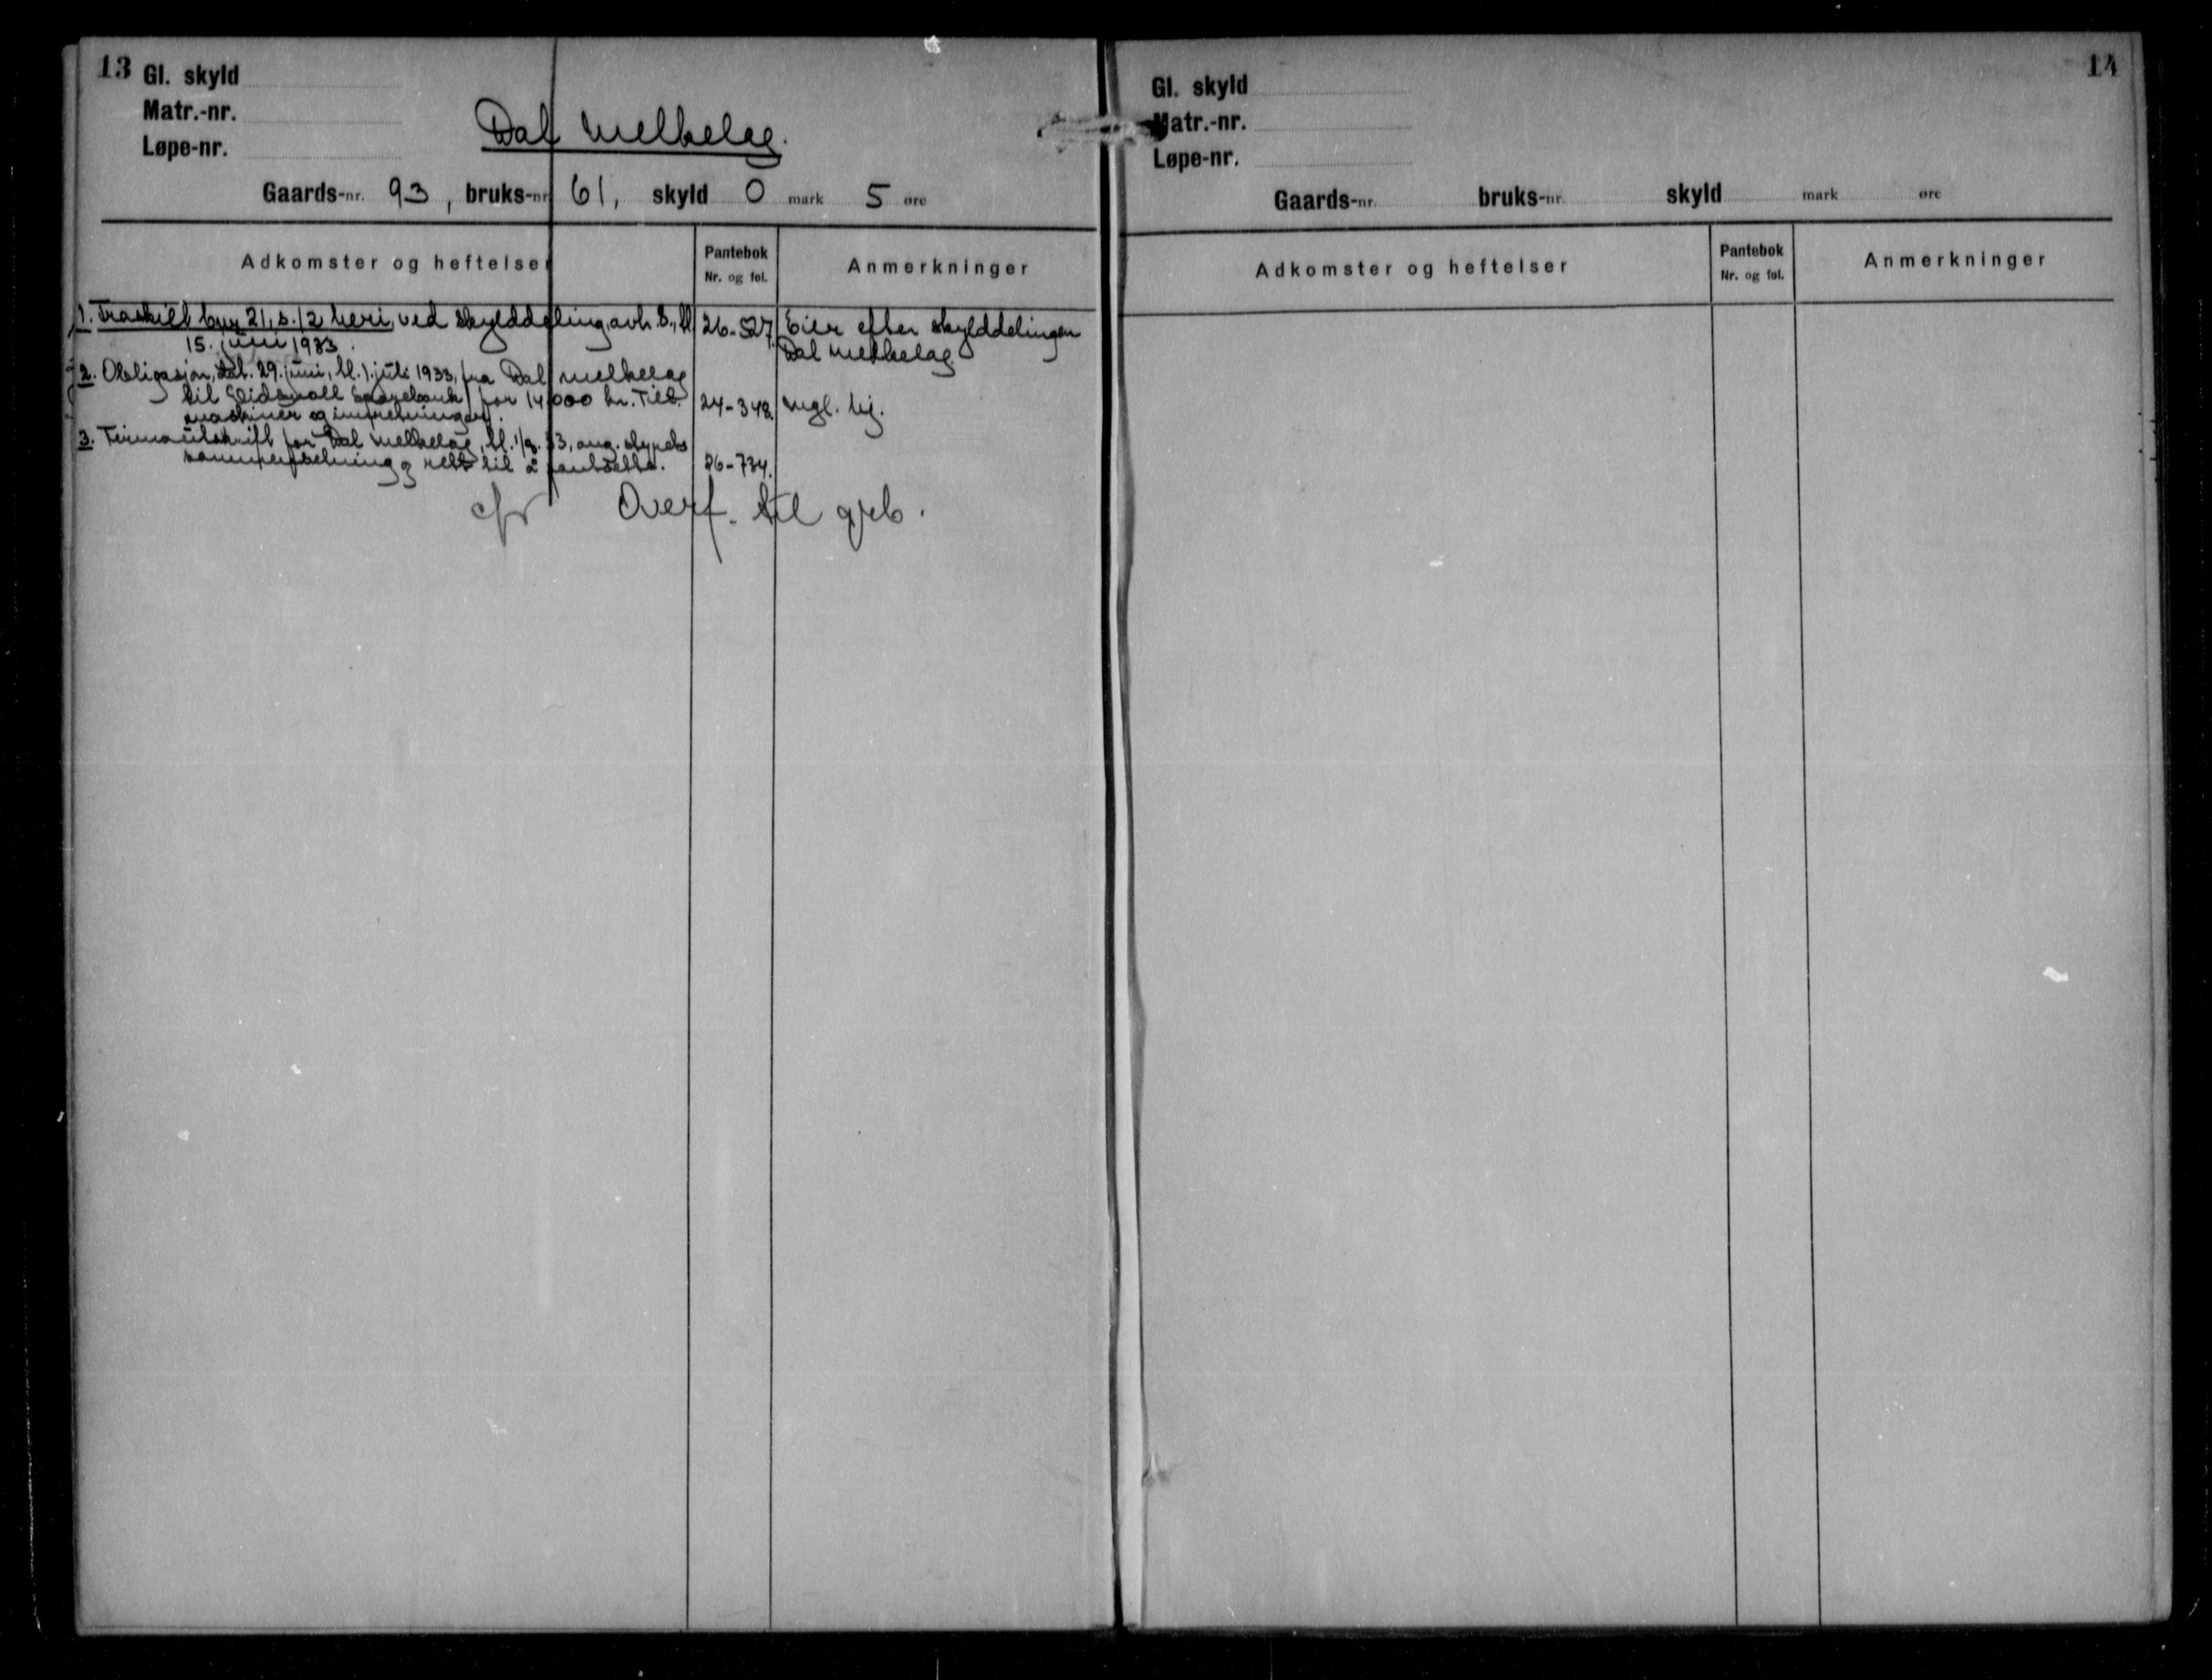 13
Gl. skyld
Matr.-nr.
Løpe-nr.
Dal melkelag.
Gaards-nr. 93, bruks-nr. 61, skyld 0 mark 5 øre
Adkomster og heftelser
Pantebok
Nr. og fol.
Anmerkninger
1. Fraskilt bnr 21, s. 12 heri, ved skylddeling, avh. 8., tl. 26-527. Eier efter skylddelingen
15. juni 1933. Dal melkelag
2. Obligasjon, dat. 29. juni, tl. 1. juli 1933, fra Dal melkelag
til Eidsvoll Sparebank for 14 000 kr. Tilb. 24-348.
maskiner og innretninger.
3. Firmautskrift for Dal melkelag, tl. 1/9. 33, ang. styrets
sammensetning og rett til å pantsette. 26-734.
cfr Overf. til grb.
14
Gl. skyld
Matr.-nr.
Løpe-nr.
Gaards-nr. bruks-nr. skyld mark øre
Adkomster og heftelser
Pantebok
Nr. og fol.
Anmerkninger